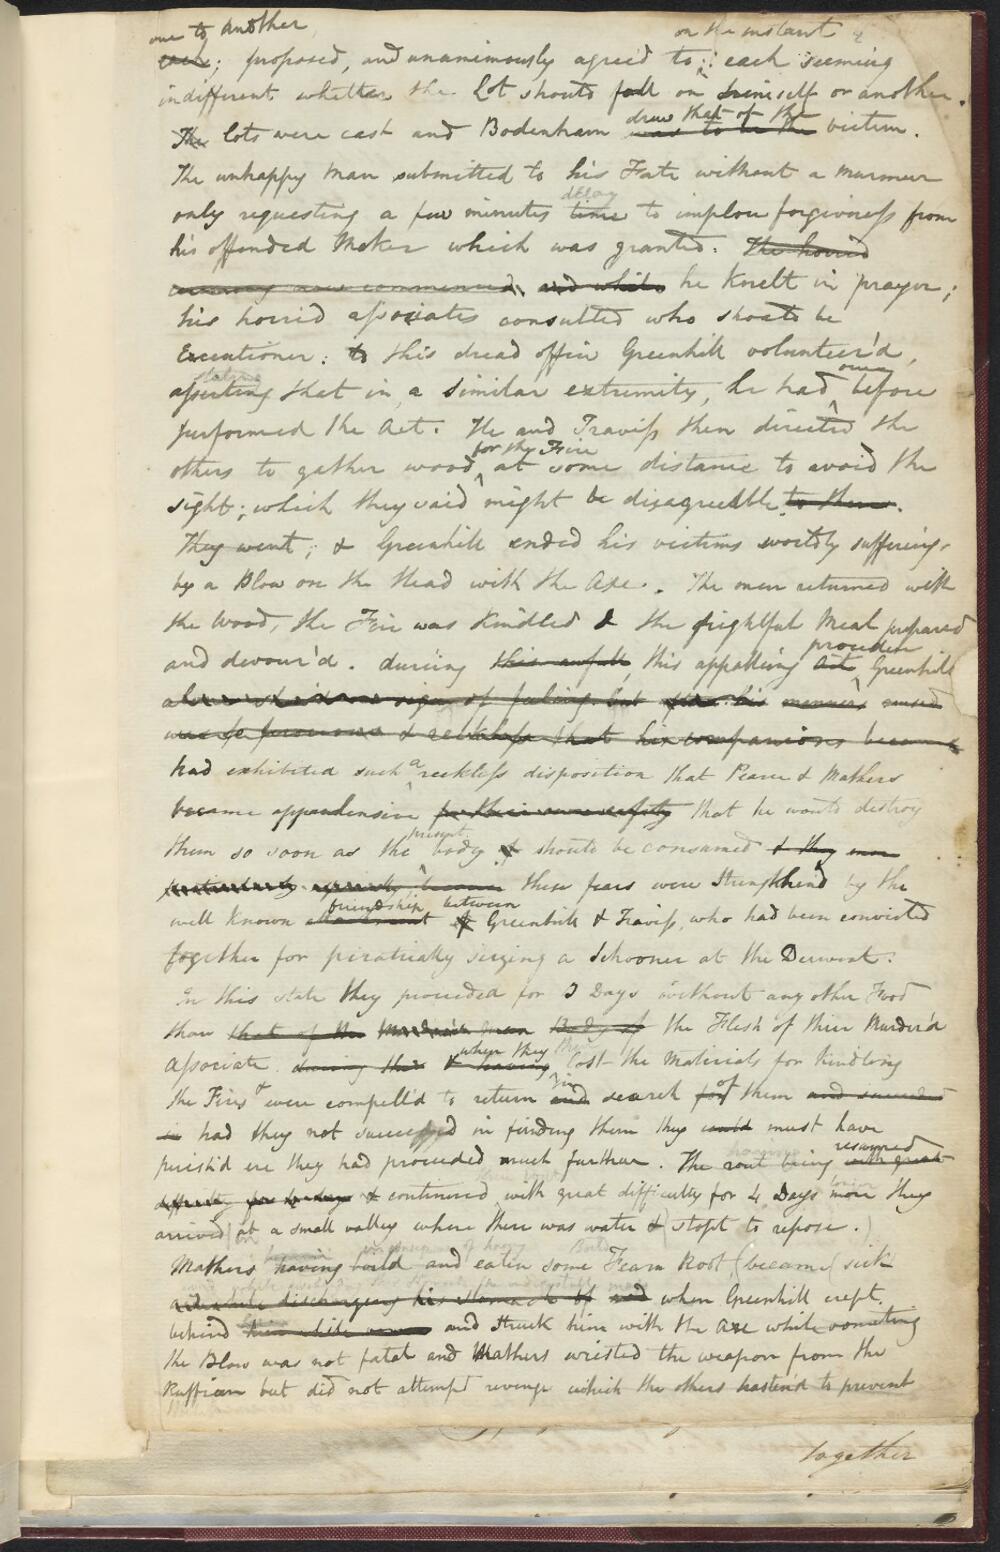 one to another on the instant
each; proposed, and unanimously agreed to; each seeming
indifferent whether the Lot should fall on himself or another.
draw that of the
The lots were cast and Bodenham was to be the victim.
The unhappy man submitted to his Fate without a murmur
delay
only requesting a few minutes time to implore forgiveness from
his offended Maker which was granted: The horrid
ceremony was commenced, and while he knelt in prayer;
his horrid associates consulted who should be
Executioner: to this dread office Greenhill volunteer'd,
stating once
asserting that in a similar extremity, he had before
performed the Act. He and Traviss then directed the
for the Fire
others to gather wood at some distance to avoid the
sight; which they said might be disagreeable to them.
They went; & Greenhill ended his victims worldly sufferings
by a Blow on the Head with the Axe. The men returned with
the Wood, the Fire was kindled & the frightful Meal prepared
procedure
and devour'd. during this awful, this appalling act Greenhill
sign of feeling but his manners
was so ferocious & reckless that his companions became
had exhibited such a reckless disposition that Pearce & Mathers
became apprehensive for their own safety that he would destroy
present
them so soon as the body of should be consumed & they more
particularly became these fears were strengthend by the
friendship between
well known attachment of Greenhill & Traviss, who had been convicted
together for piratically seizing a Schooner at the Derwent.
In this state they proceeded for 3 Days without any other Food
than that of the Murder'd Body of the Flesh of their Murder'd
when they
Associate. during this & having lost the Materials for kindling
& in of
the Fires were compell'd to return and search for them and succeeded
in had they not succeeded in finding them they could must have
resumed
perish'd ere they had proceeded much further. The rout being with great
difficulty for 4 days & continued with great difficulty for 4 Days more they
arrived at a small valley where there was water & stopt to repose.
Mathers having boild and eaten some Fearn Root (became) sick
and while discharging his stomach of when Greenhill crept
behind him while and struck him with the Axe while vomiting
the Blow was not fatal and Mathers wrested the weapon from the
Ruffian but did not attempt revenge which the others hasten'd to prevent
together